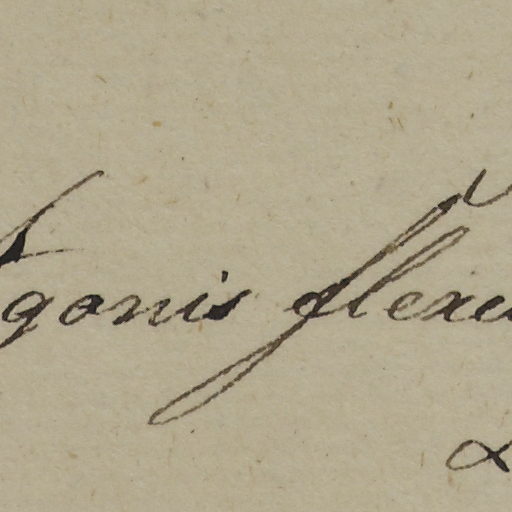 Agonis flexu